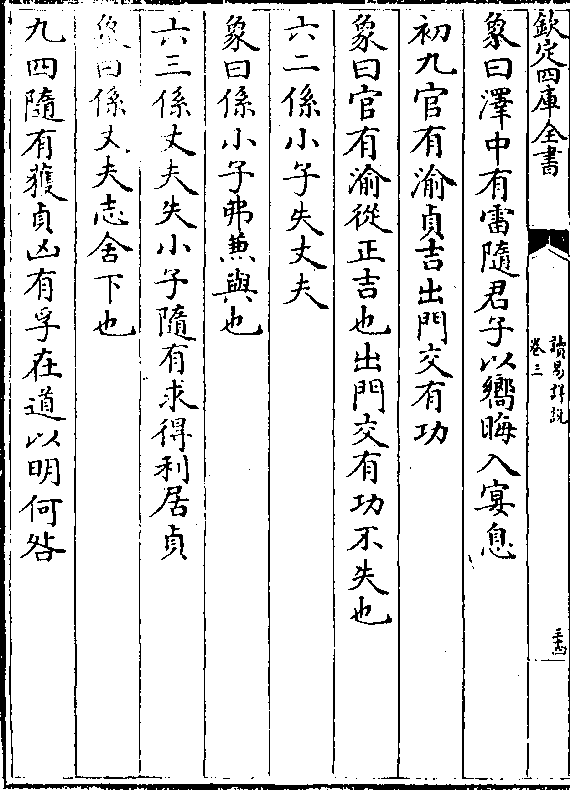 欽定四庫全書
讀易詳說
卷三
象曰澤中有雷隨君子以嚮晦入宴息
初九官有渝貞吉出門交有功
象曰官有渝從正吉也出門交有功不失也
六二係小子失丈夫
象曰係小子弗兼與也
六三係丈夫失小子隨有求得利居貞
象曰係丈夫志舍下也
九四隨有獲貞凶有孚在道以明何咎